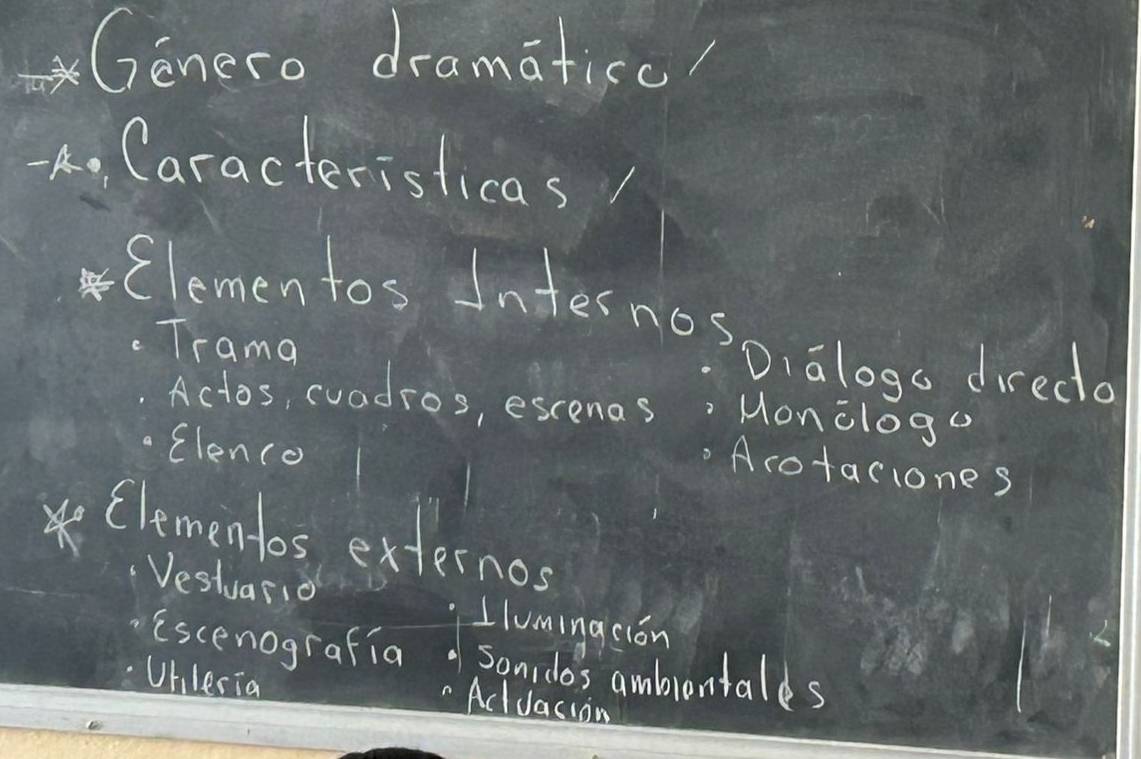 Género dramático
Características
* Elementos Internos
· Trama
· Actos, cuadros, escenas
· Elenco
· Diálogo directo
· Monólogo
· Acotaciones
* Elementos externos
· Vestuario
· Escenografía
· Utilería
· Iluminación
· Sonidos ambientales
· Actuación